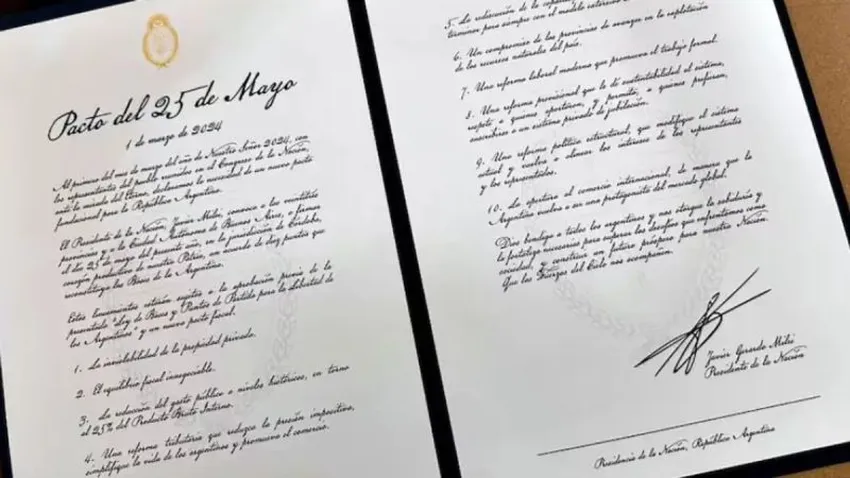 Pacto del 25 de Mayo
1 de marzo de 2024
Al primero del mes de marzo del año de Nuestro Señor 2024, con
los representantes del pueblo reunidos en el Congreso de la Nación,
ante la mirada del Eterno, declaramos la necesidad de un nuevo pacto
fundacional para la República Argentina.
El Presidente de la Nación, Javier Milei, convoca a las veintitrés
provincias y a la Ciudad Autónoma de Buenos Aires, a firmar
el día 25 de mayo del presente año, en la jurisdicción de Córdoba,
corazón productivo de nuestra Patria, un acuerdo de diez puntos que
reconstituya las Bases de la Argentina.
Estos lineamientos estarán sujetos a la aprobación previa de la
presentada "Ley de Bases y Puntos de Partida para la Libertad de
los Argentinos" y un nuevo pacto fiscal.
1. La inviolabilidad de la propiedad privada.
2. El equilibrio fiscal innegociable.
3. La reducción del gasto público a niveles históricos, en torno
al 25% del Producto Bruto Interno.
4. Una reforma tributaria que reduzca la presión impositiva,
simplifique la vida de los argentinos y promueva el comercio.
5. La rediscusión de la
terminar para siempre con el modelo extorsivo
6. Un compromiso de las provincias de avanzar en la explotación
de los recursos naturales del país.
7. Una reforma laboral moderna que promueva el trabajo formal.
8. Una reforma previsional que le dé sustentabilidad al sistema,
respete a quienes aportaron, y permita, a quienes prefieran,
suscribirse a un sistema privado de jubilación.
9. Una reforma política estructural, que modifique el sistema
actual y vuelva a alinear los intereses de los representantes
y los representados.
10. La apertura al comercio internacional, de manera que la
Argentina vuelva a ser una protagonista del mercado global.
Dios bendiga a todos los argentinos y nos otorgue la sabiduría y
la fortaleza necesarias para superar los desafíos que enfrentamos como
sociedad, y construir un futuro próspero para nuestra Nación.
Que las Fuerzas del Cielo nos acompañen.
Javier Gerardo Milei
Presidente de la Nación
Presidencia de la Nación, República Argentina